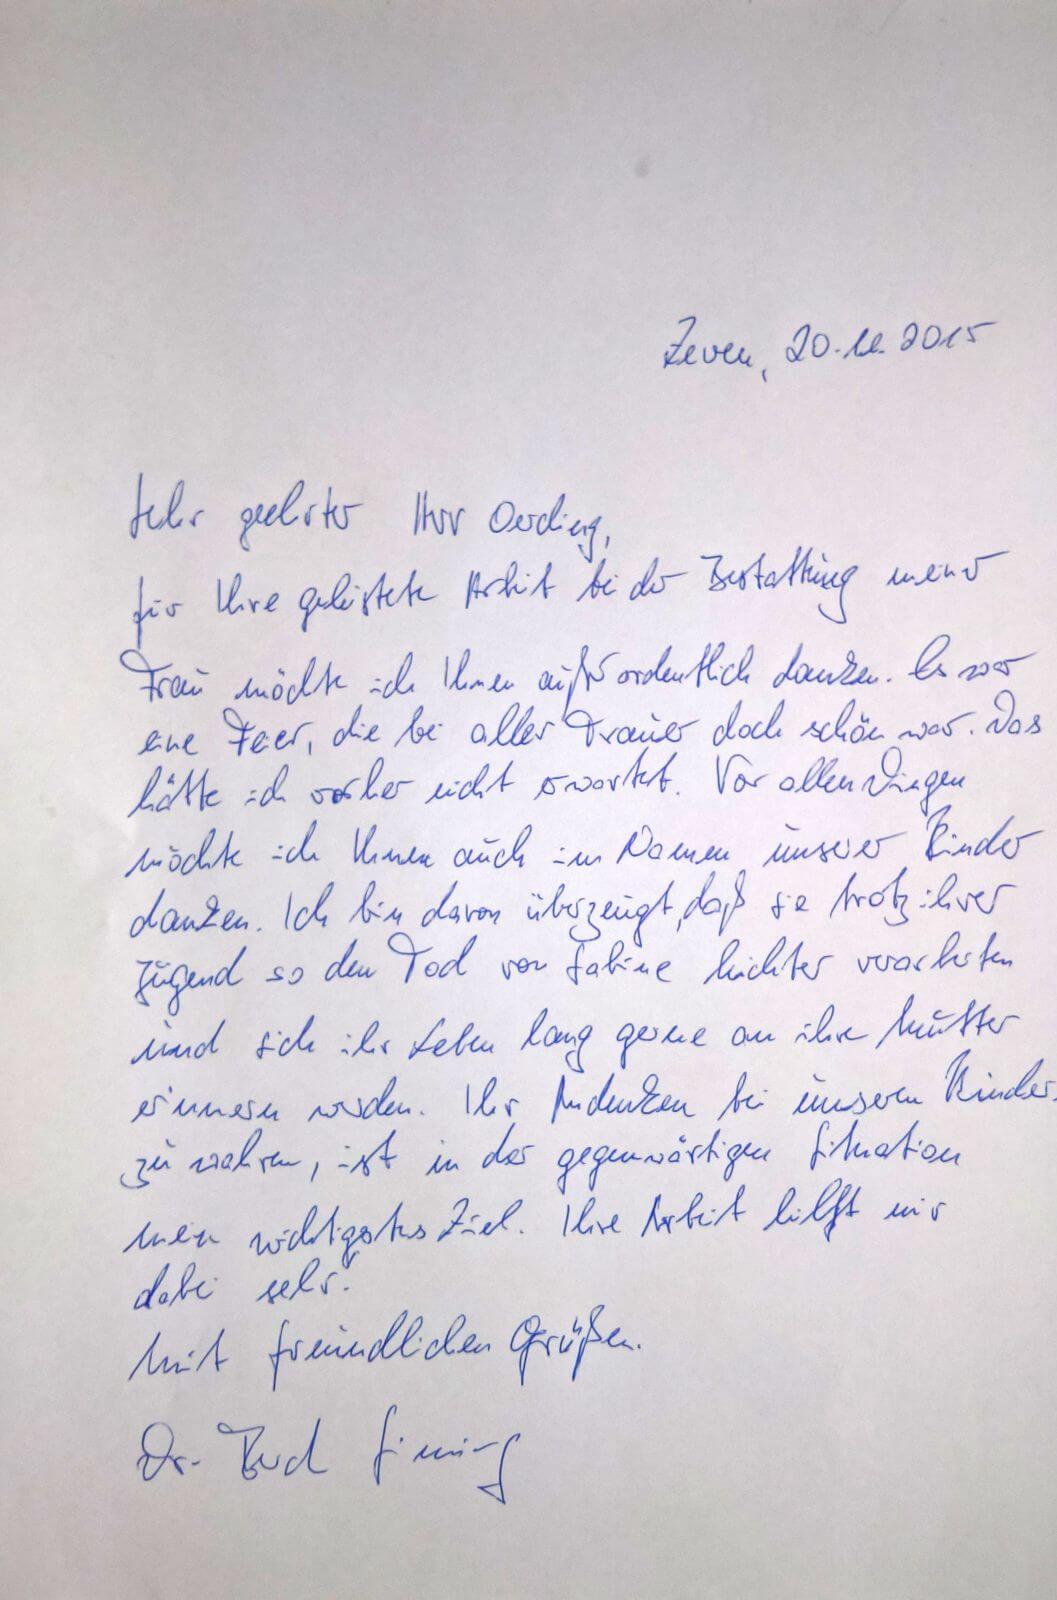 Zeven, 20. 2015
Sehr geehrter Herr Oerding,
für Ihre geleistete Arbeit bei der Bestattung meiner
Frau möchte ich Ihnen außerordentlich danken. Es war
eine Feier, die bei aller Trauer doch schön war. Das
hätte ich vorher nicht erwartet. Vor allen Dingen
möchte ich Ihnen auch im Namen unserer Kinder
danken. Ich bin davon überzeugt, daß sie trotz ihrer
Jugend so den Tod von Sabine leichter verarbeiten
und sich ihr Leben lang gerne an ihre Mutter
erinnern werden. Ihr Andenken bei unseren Kindern
zu wahren, ist in der gegenwärtigen Situation
mein wichtigstes Ziel. Ihre Arbeit hilft mir
dabei sehr.
Mit freundlichen Grüßen.
Dr.